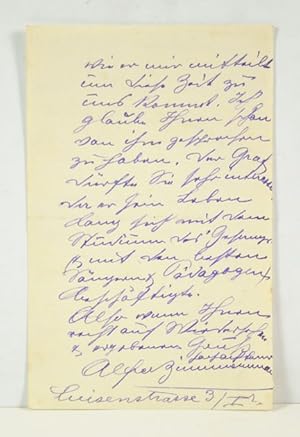 wie er mir mitteilt
um diese Zeit zu
uns kommt. Ich
glaube Ihnen schon
von ihm geschrieben
zu haben. Der Graf
dürfte Sie sehr
da er sein Leben
lang sich mit dem
Studium des Gesanges
mit den besten
Sängern Pädagogen
beschäftigte.
Also wenn Ihnen
recht auf Wiedersehn
ergebenen Gruß
Alfred Zimmermann
Luisenstrasse 3/I r.